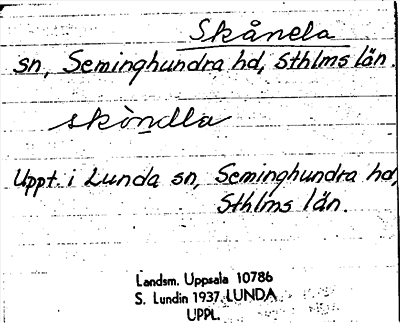 Skånela
sn, Seminghundra hd, Sthlms län.
skòndla
Uppt. i Lunda sn, Seminghundra hd,
Sthlms län.
Landsm. Uppsala 10786
S. Lundin 1937. LUNDA
UPPL.